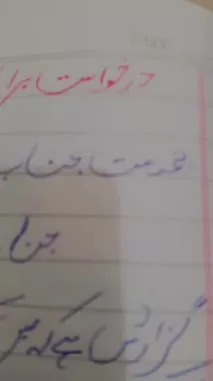 درخواست برا
بخدمت جناب
جنا
گزارش ہے کہ میر